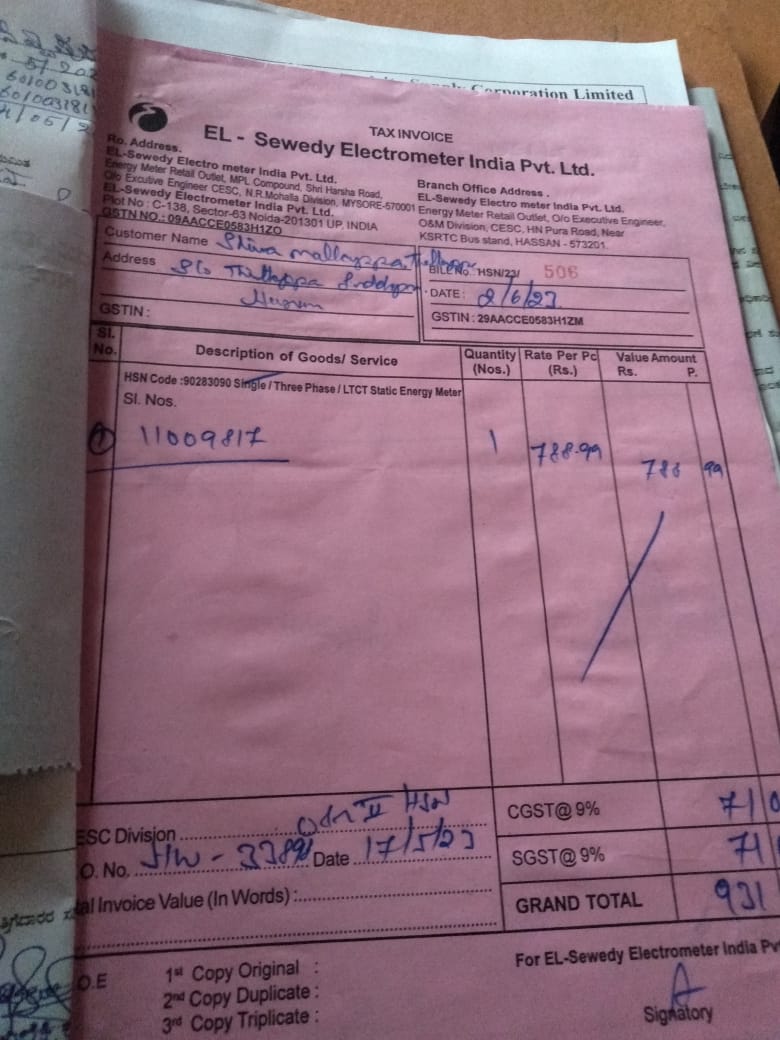 57202
60100318
60/003181
Corporation Limited
TAX INVOICE
EL - Sewedy Electrometer India Pvt. Ltd.
Ro. Address.
EL-Sewedy Electro meter India Pvt. Ltd.
Energy Meter Retail Outlet, MPL Compound, Shri Harsha Road,
O/o Excutive Engineer CESC, N.R.Mohalla Division, MYSORE-570001
EL-Sewedy Electrometer India Pvt. Ltd.
Plot No : C-138, Sector-63 Noida-201301 UP, INDIA
GSTN NO.: 09AACCE0583H1ZO
Branch Office Address .
EL-Sewedy Electro meter India Pvt. Ltd.
Energy Meter Retail Outlet, O/o Executive Engineer,
O&M Division, CESC, HN Pura Road, Near
KSRTC Bus stand, HASSAN - 573201.
Customer Name Shiva mallappa
Address S/o
GSTIN :
BILL No. HSN/23/ 506
DATE : 2/6/23
GSTIN : 29AACCE0583H1ZM
Sl. No. Description of Goods/ Service Quantity (Nos.) Rate Per Pc (Rs.) Value Amount Rs. P.
HSN Code :90283090 Single / Three Phase / LTCT Static Energy Meter
Sl. Nos.
1 11009817 1 788.99 788 99
ESC Division HSN
O. No. 3389 Date 17/5/23
al Invoice Value (In Words) :
CGST@ 9% 71
SGST@ 9% 71
GRAND TOTAL 931
For EL-Sewedy Electrometer India Pv
O.E
1st Copy Original :
2nd Copy Duplicate :
3rd Copy Triplicate :
Signatory